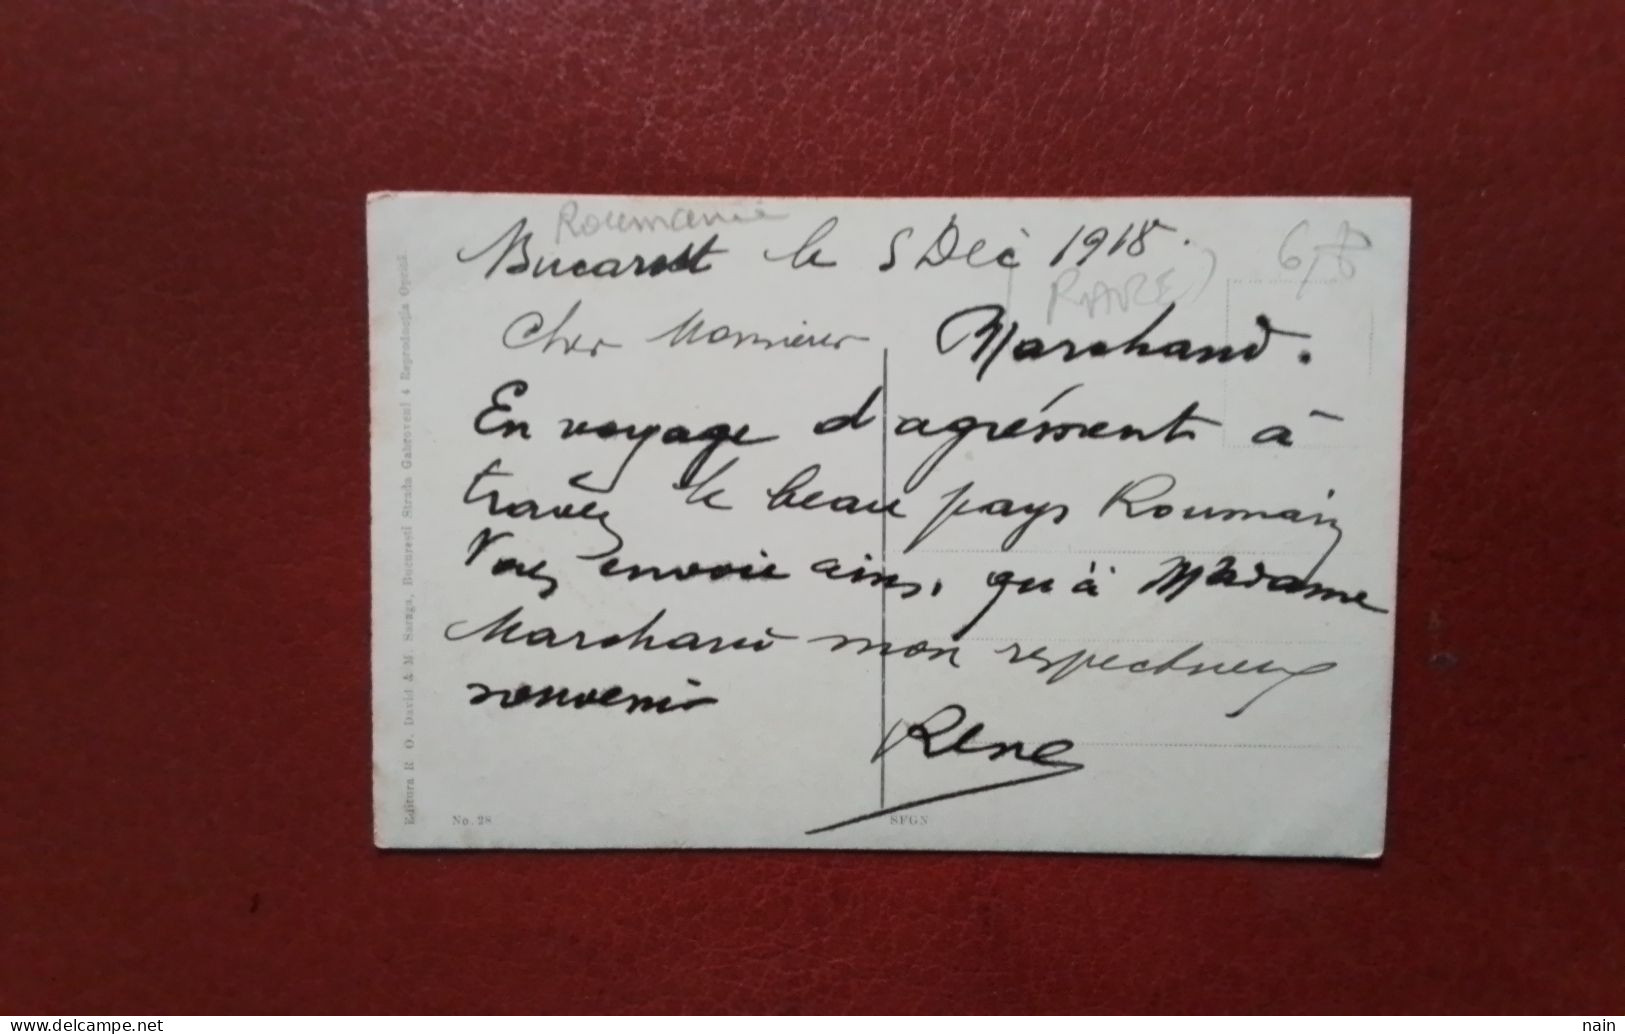 Roumanie
Bucarest le 5 Déc 1918.
(RARE)
Cher Monsieur Marchand.
En voyage d'agrément à
travers le beau pays Roumain
Vous envoie ainsi qu'à Madame
Marchand mon respectueux
souvenir
René
Editura R. O. David & M. Saraga, Bucuresti Strada Gabroveni 4 Reproducţia Oprită.
No. 28
SFGN
nain